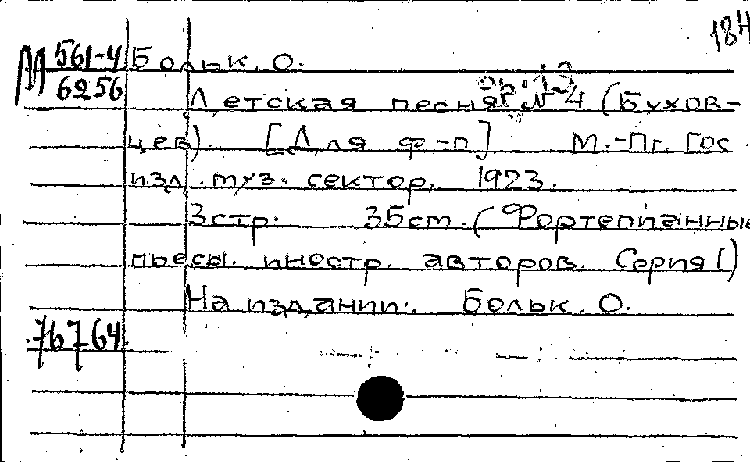 184
М 561-4 Больк. О.
6256 ор. 13
Детская песня № 4 (Бухов-
цев). [Для ф-п] М.-Пг. Гос.
изд. муз. сектор. 1923.
3 стр. 35 cm. (Фортепианные
пьесы. иностр. авторов. Серия I)
На издании: Больк. О.
76764